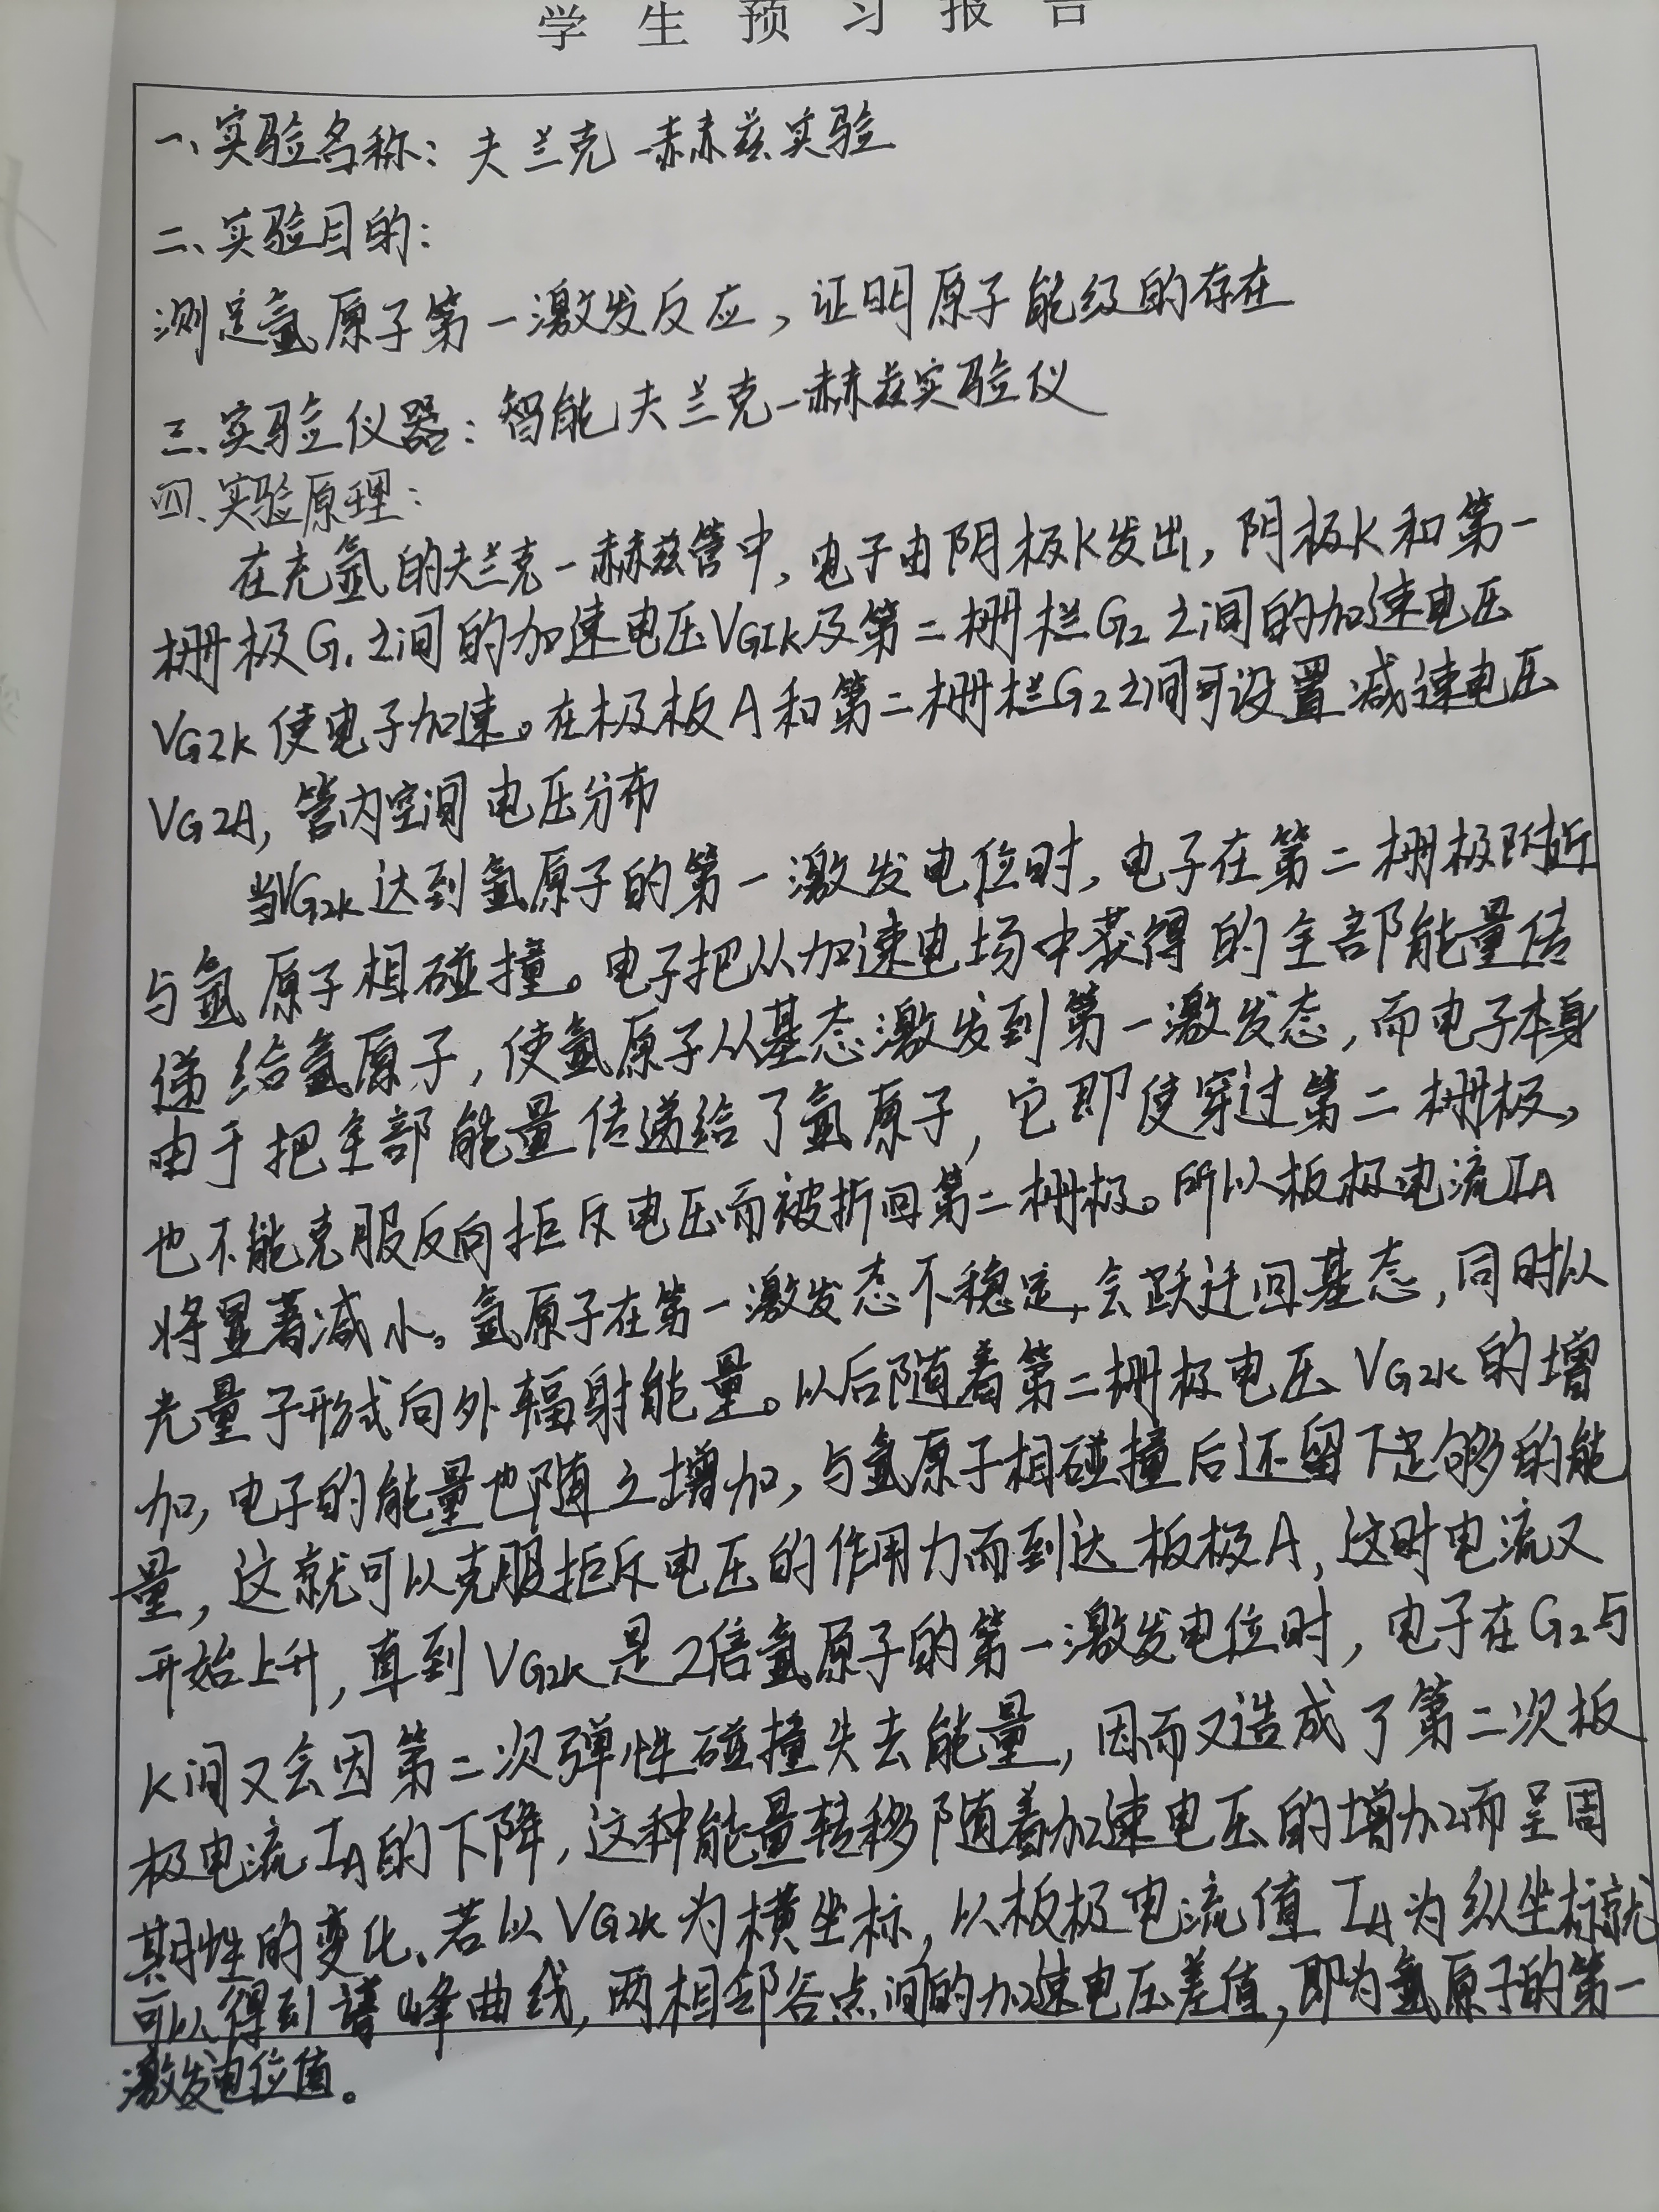 学生预习报告
一、实验名称：夫兰克-赫兹实验
二、实验目的：
测定氩原子第一激发反应，证明原子能级的存在
三、实验仪器：智能夫兰克-赫兹实验仪
四、实验原理：
在充氩的夫兰克-赫兹管中，电子由阴极K发出，阴极K和第一
栅极G₁之间的加速电压VG1K及第二栅栏G₂之间的加速电压
VG2K使电子加速。在极板A和第二栅栏G2之间可设置减速电压
VG2A，管内空间电压分布
当VG2K达到氩原子的第一激发电位时，电子在第二栅极附近
与氩原子相碰撞。电子把从加速电场中获得的全部能量传
递给氩原子，使氩原子从基态激发到第一激发态，而电子本身
由于把全部能量传递给了氩原子，它即使穿过第二栅极，
也不能克服反向拒斥电压而被折回第二栅极。所以板极电流IA
将显著减小。氩原子在第一激发态不稳定，会跃迁回基态，同时以
光量子形式向外辐射能量。以后随着第二栅极电压VG2K的增
加，电子的能量也随之增加，与氩原子相碰撞后还留下足够的能
量，这就可以克服拒斥电压的作用力而到达板极A，这时电流又
开始上升，直到VG2K是2倍氩原子的第一激发电位时，电子在G2与
K间又会因第二次弹性碰撞失去能量，因而又造成了第二次板
极电流IA的下降，这种能量转移随着加速电压的增加而呈周
期性的变化、若以VG2K为横坐标，以板极电流值IA为纵坐标就
可以得到谱峰曲线，两相邻谷点间的加速电压差值，即为氩原子的第一
激发电位值。